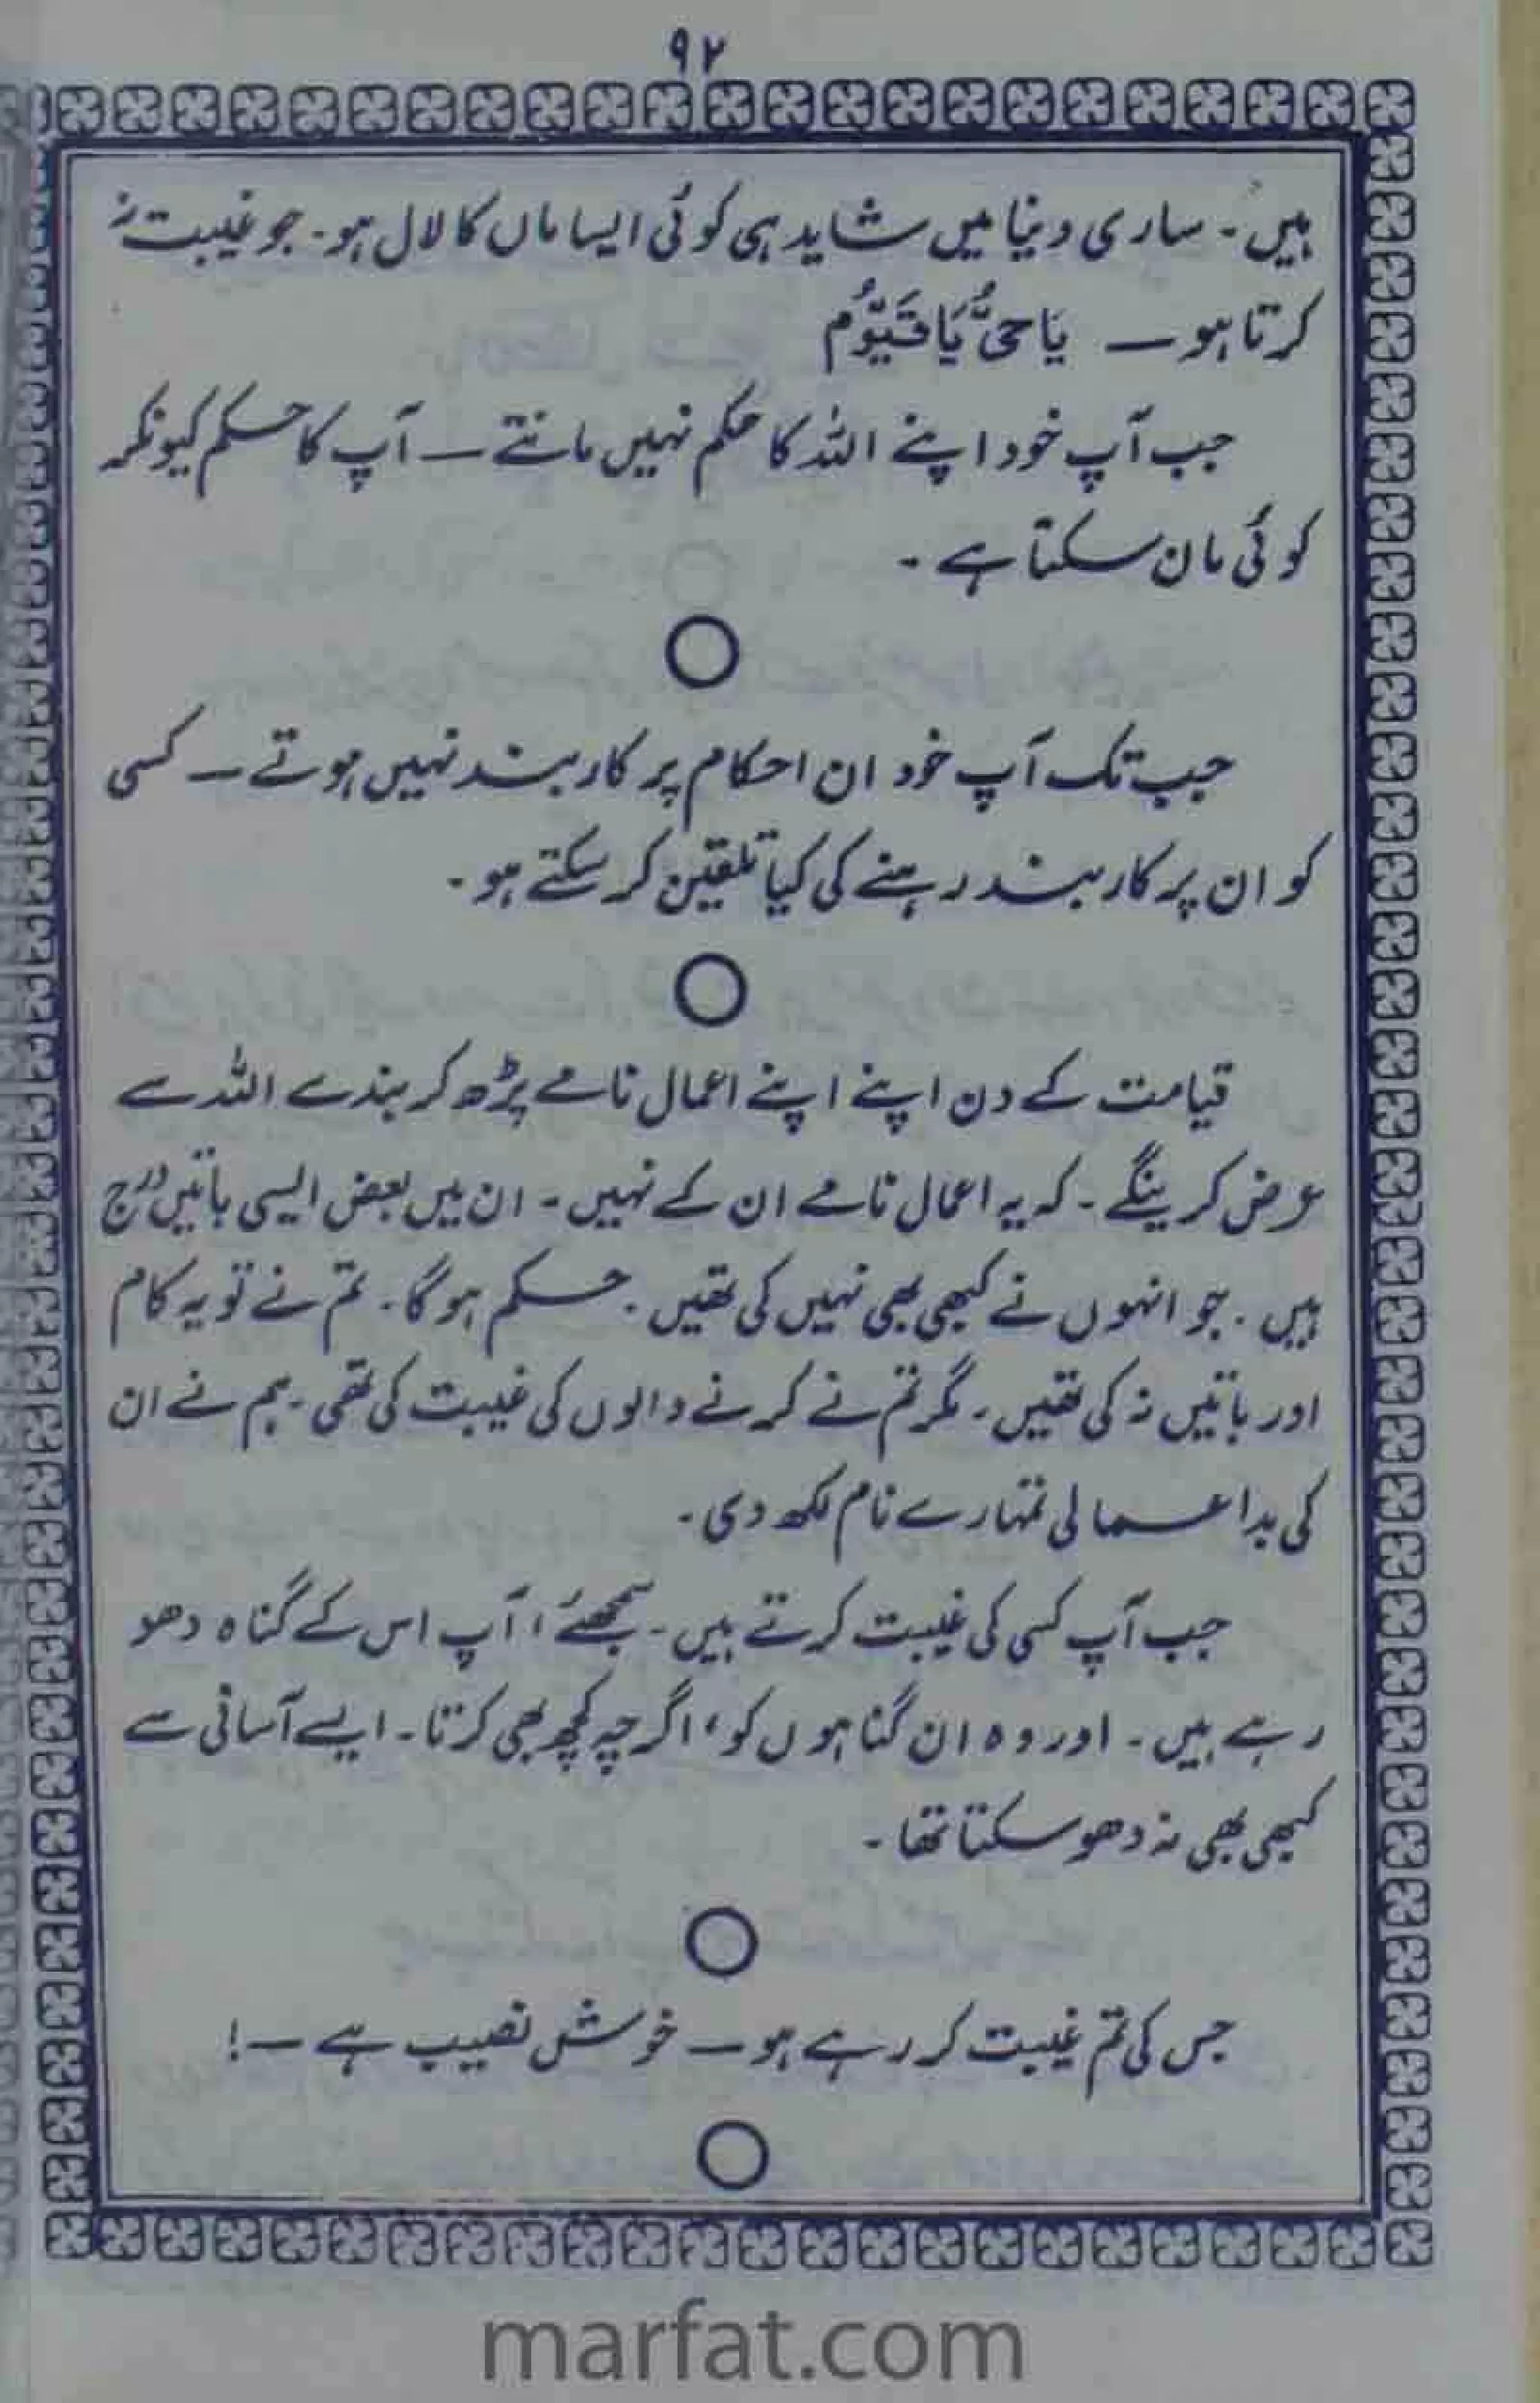 ۹۲
ہیں۔ ساری دنیا میں شاید ہی کوئی ایسا ماں کا لال ہو۔ جو غیبت نہ
کرتا ہو — یَا حَیُّ یَا قَیُّوْمُ
جب آپ خود اپنے اللہ کا حکم نہیں مانتے — آپ کا حکم کیونکر
کوئی مان سکتا ہے۔
جب تک آپ خود ان احکام پر کاربند نہیں ہوتے — کسی
کو ان پر کاربند رہنے کی کیا تلقین کر سکتے ہو۔
قیامت کے دن اپنے اپنے اعمال نامے پڑھ کر بندے اللہ سے
عرض کرینگے۔ کہ یہ اعمال نامے ان کے نہیں۔ ان میں بعض ایسی باتیں درج
ہیں۔ جو انہوں نے کبھی بھی نہیں کی تھیں۔ حکم ہو گا۔ تم نے تو یہ کام
اور باتیں نہ کی تھیں۔ مگر تم نے کرنے والوں کی غیبت کی تھی۔ ہم نے ان
کی بداعمالی تمہارے نام لکھ دی۔
جب آپ کسی کی غیبت کرتے ہیں۔ سمجھئے، آپ اس کے گناہ دھو
رہے ہیں۔ اور وہ ان گناہوں کو، اگرچہ کچھ بھی کرتا۔ ایسے آسانی سے
کبھی بھی نہ دھو سکتا تھا۔
جس کی تم غیبت کر رہے ہو — خوش نصیب ہے —!
marfat.com